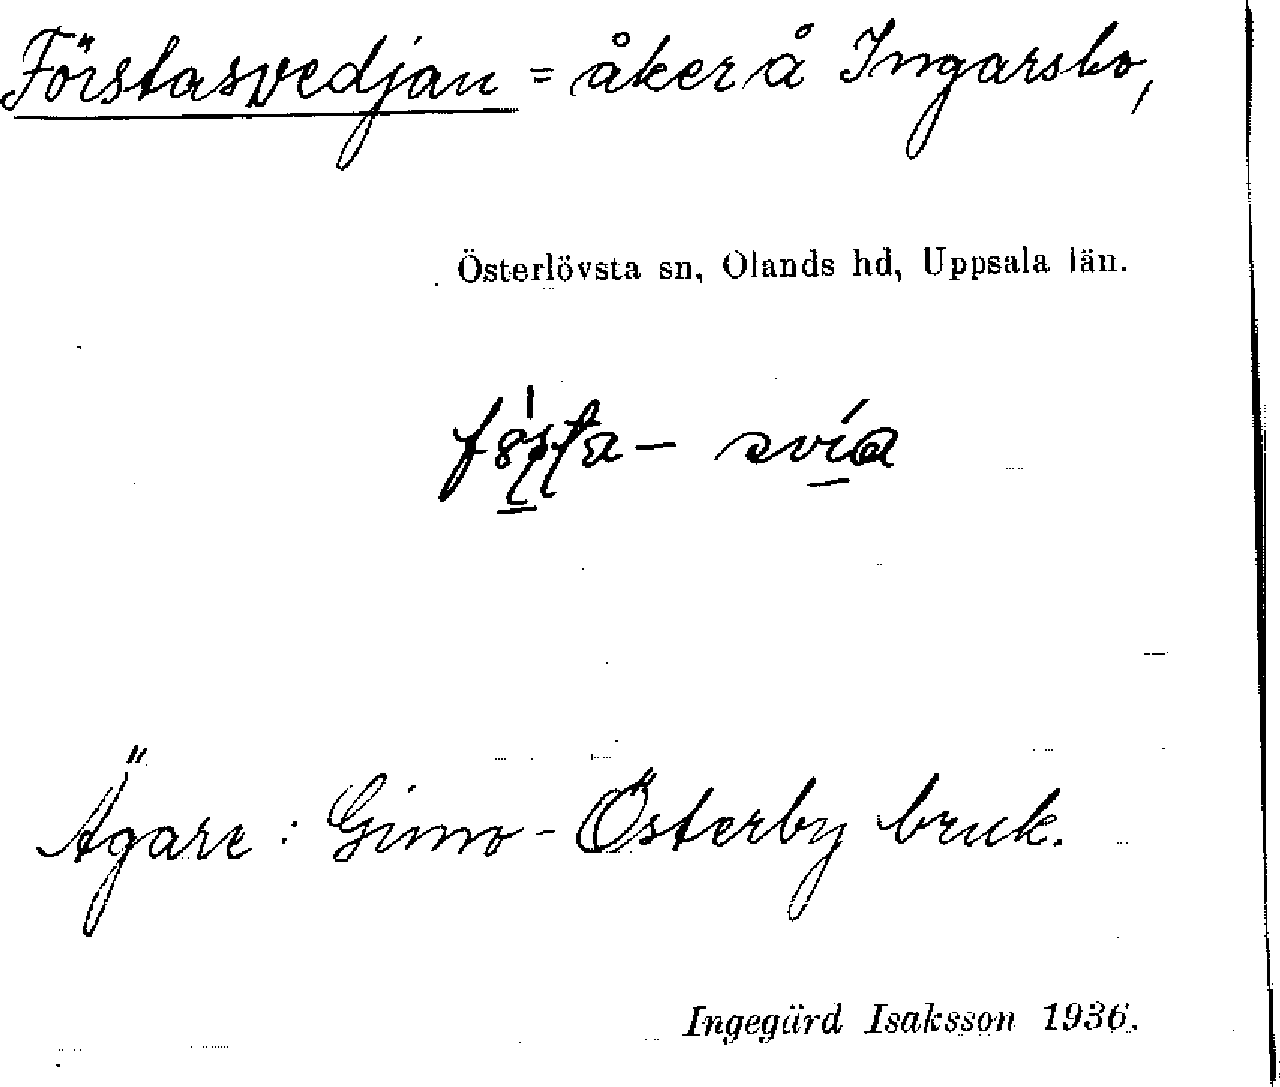 Förstasvedjan = åker å Ingarsbo,
Österlövsta sn, Olands hd, Uppsala län.
Ägare : Gimo - Österby bruk.
Ingegärd Isaksson 1936.